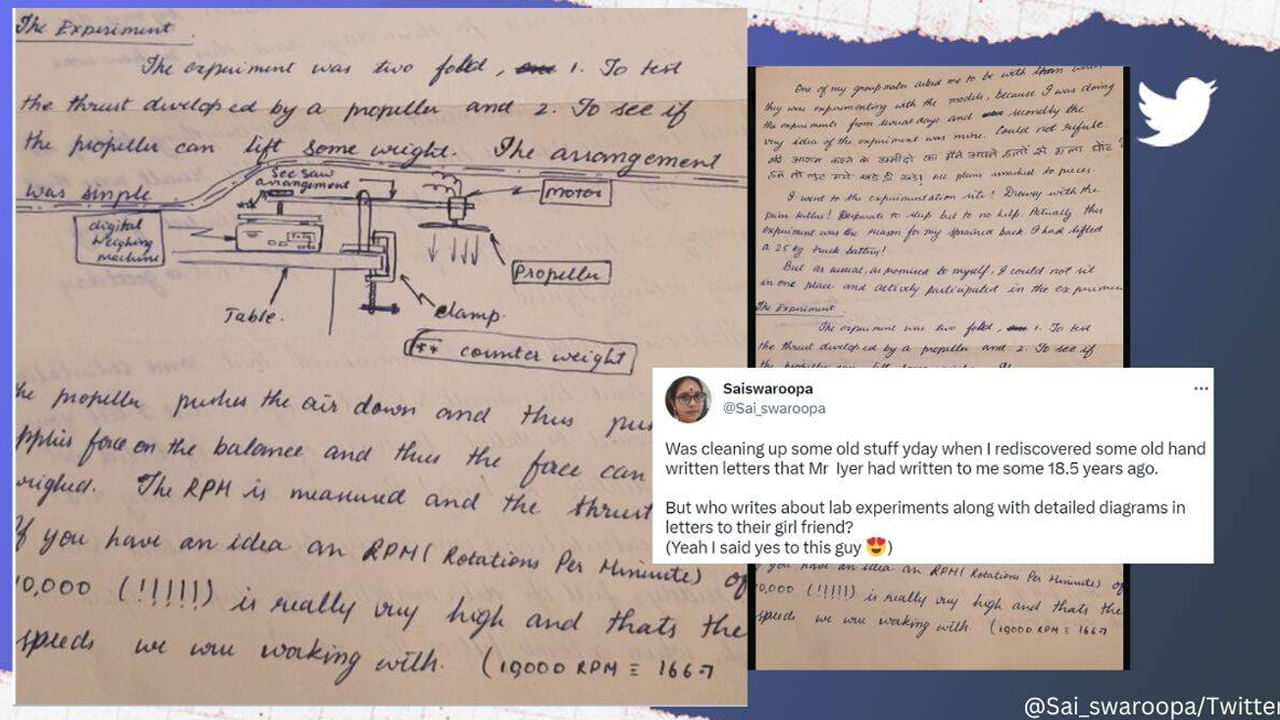 The Experiment
The experiment was two fold, 1. To test
the thrust developed by a propeller and 2. To see if
the propeller can lift some weight. The arrangement
was simple
See saw
arrangement
Motor
digital
weighing
machine
Propeller
Table.
clamp.
++ counter weight
he propeller pushes the air down and thus pu
applies force on the balance and thus the force can
eighed. The RPM is measured and the thrust
If you have an idea an RPM ( Rotations Per Mininute) of
0,000 (!!!!!!) is really very high and thats the
speeds we were working with. (10000 RPM ≡ 166.7
One of my groupmates asked me to be with them when
they were experimenting with the models, because I was doing
the experiments from several days and secondly the
very idea of the experiment was mine. Could not refuse
All plans smashed to pieces.
I went to the experimentation site! Drowsy with the
pain killers! Desperate to sleep but to no help. Actually this
experiment was the reason for my sprained back I had lifted
a 25 kg truck battery!
But as usual, as promised to myself, I could not sit
in one place and actively participated in the experimen
The Experiment
The experiment was two fold, 1. To test
the thrust developed by a propeller and 2. To see if
Saiswaroopa
@Sai_swaroopa
Was cleaning up some old stuff yday when I rediscovered some old hand
written letters that Mr Iyer had written to me some 18.5 years ago.
But who writes about lab experiments along with detailed diagrams in
letters to their girl friend?
(Yeah I said yes to this guy 😍)
you have an idea an RPM ( Rotations Per Mininute) of
0,000 (!!!!!!) is really very high and thats the
speeds we were working with. (10000 RPM ≡ 166.7
@Sai_swaroopa/Twitter